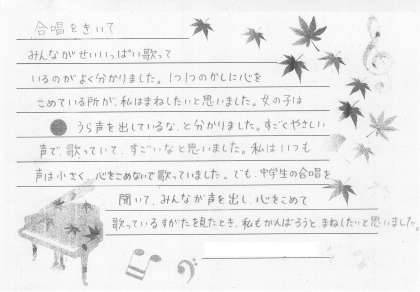 合唱をきいて
みんながせいいっぱい歌って
いるのがよく分かりました。1つ1つのかしに心を
こめている所が、私はまねしたいと思いました。女の子は
うら声を出しているな、と分かりました。すごくやさしい
声で、歌っていて、すごいなと思いました。私はいつも
声は小さく、心をこめないで歌っていました。でも、中学生の合唱を
聞いて、みんなが声を出し、心をこめて
歌っているすがたを見たとき、私もがんばろうと、まねしたいと思いました。